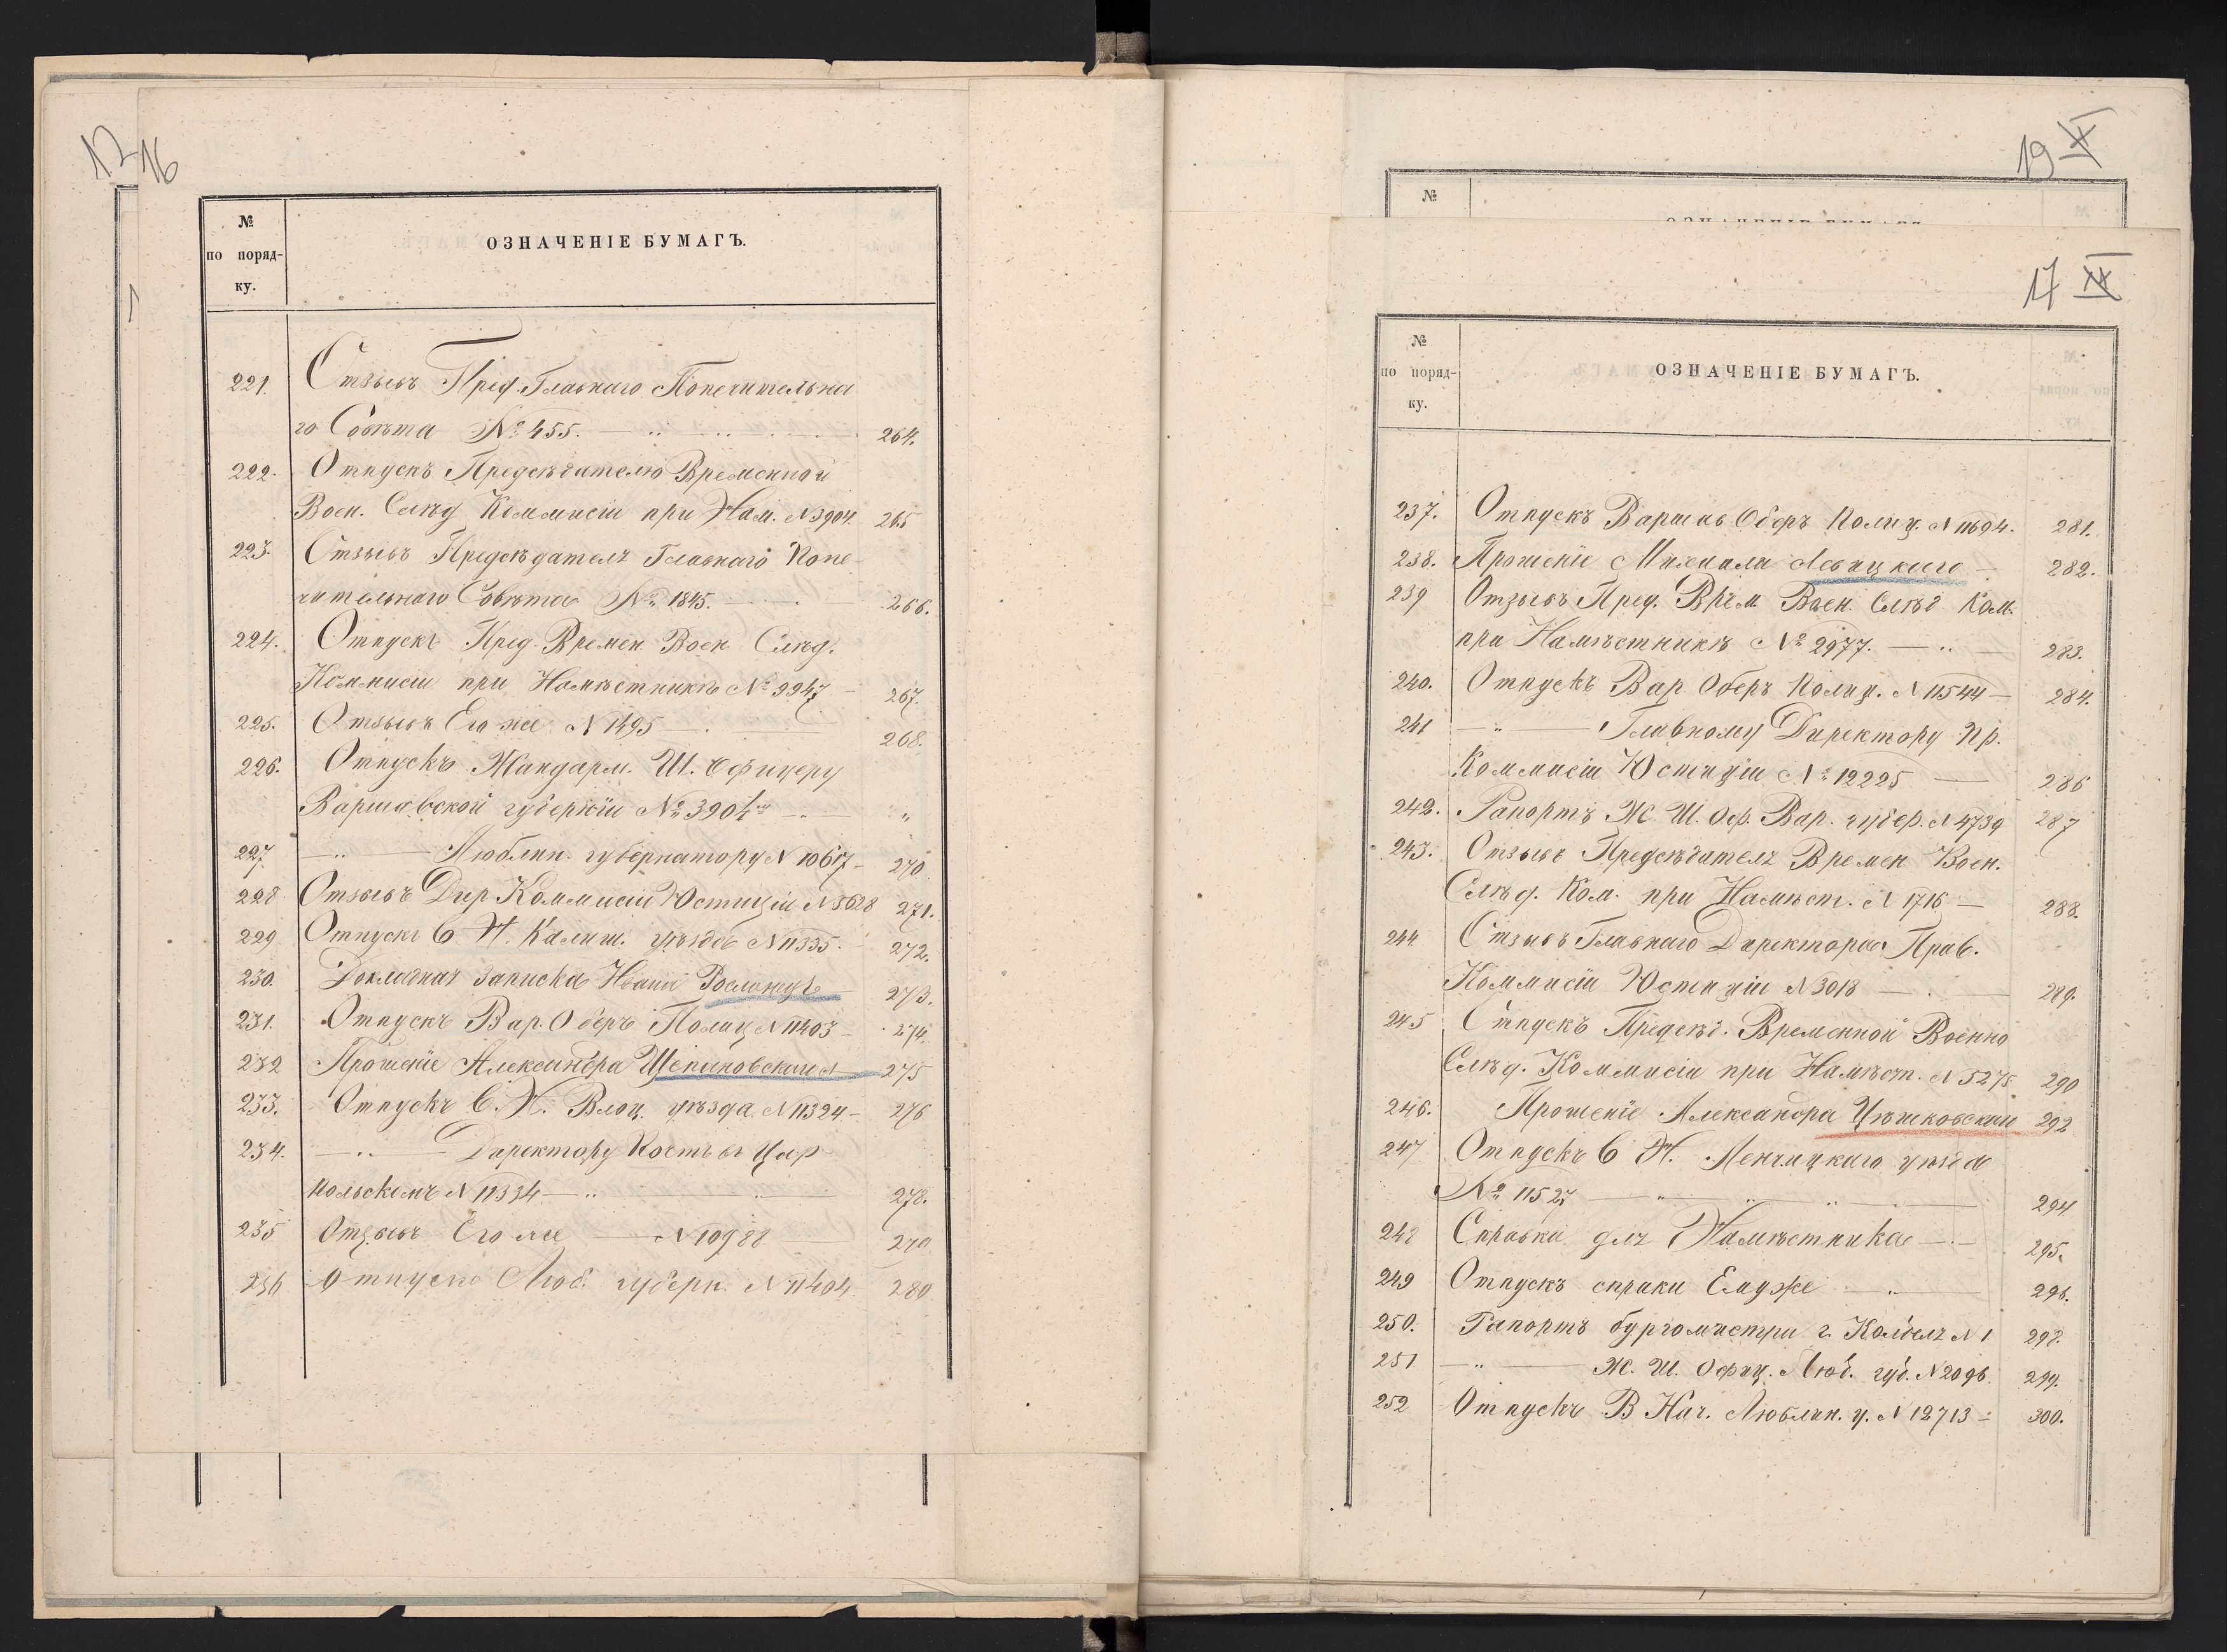 12
16
№
по поряд-
ку.
ОЗНАЧЕНІЕ БУМАГЪ.
221. Отзывъ Пред. Главнаго Попечительна
го Совѣта № 455. 264.
222. Отпускъ Предсѣдателю Временной
Воен. Слѣд Коммисіи при Нам. N 3904. 265
223. Отзывъ Предсѣдателя Главнаго Попе-
чительнаго Совѣта № 1845. 266.
224. Отпускъ Пред. Времен. Воен. Слѣд.
Коммисіи при Намѣстникѣ № 9947 267.
225. Отзывъ Его же N 1495 268.
226. Отпускъ Жандарм. Ш. Офицеру
Варшавской губерніи № 3904 "
227. — " — Люблин. губернатору N 10617 270
228 Отзывъ Дир Коммисіи Юстиціи N 3628 271.
229 Отпускъ В Н. Калиш. уѣзда N 11335. 272.
230. Докладная записка Ивана 273.
231. Отпускъ Вар. Оберъ Полиц N 11403 274.
232 Прошеніе Александра 275
233. Отпускъ В. Н. Влоц. уѣзда N 11324 276
234. — " — Директору Почтъ въ Цар
Польскомъ N 11334 278.
235 Отзывъ Его же N 10988 279
236 Отпускъ Люб. губерн. N 11404. 280
19
№
17
№
по поряд-
ку.
ОЗНАЧЕНІЕ БУМАГЪ.
237. Отпускъ Варшав Оберъ Полиц. N 11694. 281.
238. Прошеніе Михаила Левицкаго 282.
239 Отзывъ Пред. Врем. Воен. Слѣд Ком.
при Намѣстникѣ № 2977. 283.
240. Отпускъ Вар. Оберъ Полиц. N 11544 284.
241 — " — Главному Директору Пр.
Коммисіи Юстиціи № 12225 286
242. Рапортъ Ж. Ш. Оф. Вар. губер. N 4739 287
243. Отзывъ Предсѣдателя Времен Воен.
Слѣд. Ком. при Намѣст. N 1716 288.
244 Отзывъ Главнаго Директора Прав.
Коммисіи Юстиціи N 3018 289.
245 Отпускъ Предсѣд. Временной Военно
Слѣд. Коммисіи при Намѣст. N 5275 290
246. Прошеніе Александра 292
247 Отпускъ В Н. Ленчицкаго уѣзда
№ 11527 294
248 Справка для Намѣстника 295.
249 Отпускъ справки Емуже 296.
250. Рапортъ бургомистра г. N 1 298.
251 — " — Ж. Ш. Офиц. Люб. губ. N 2096. 299.
252 Отпускъ В Нач. Люблин. у. N 12713 300.